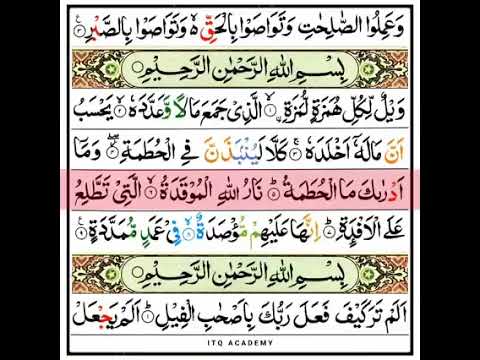 وَعَمِلُوا الصّٰلِحٰتِ وَتَوَاصَوْا بِالْحَقِّ ۙ وَتَوَاصَوْا بِالصَّبْرِ ۝۳
بِسْمِ اللّٰهِ الرَّحْمٰنِ الرَّحِيْمِ
وَيْلٌ لِّكُلِّ هُمَزَةٍ لُّمَزَةٍ ۝۱ الَّذِيْ جَمَعَ مَالًا وَّعَدَّدَهٗ ۝۲ يَحْسَبُ
اَنَّ مَالَهٗٓ اَخْلَدَهٗ ۝۳ كَلَّا لَيُنْۢبَذَنَّ فِي الْحُطَمَةِ ۝۴ وَمَآ
اَدْرٰىكَ مَا الْحُطَمَةُ ۝۵ نَارُ اللّٰهِ الْمُوْقَدَةُ ۝۶ الَّتِيْ تَطَّلِعُ
عَلَى الْاَفْـِٕدَةِ ۝۷ اِنَّهَا عَلَيْهِمْ مُّؤْصَدَةٌ ۝۸ فِيْ عَمَدٍ مُّمَدَّدَةٍ ۝۹
بِسْمِ اللّٰهِ الرَّحْمٰنِ الرَّحِيْمِ
اَلَمْ تَرَ كَيْفَ فَعَلَ رَبُّكَ بِاَصْحٰبِ الْفِيْلِ ۝۱ اَلَمْ يَجْعَلْ
ITQ ACADEMY